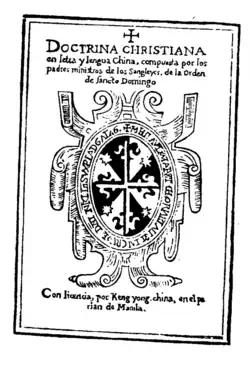 DOCTRINA CHRISTIANA
en letra y lengua China, compuesta por los
padres ministros de los Sangleyes, de la Orden
de sancto Domingo
Con licencia, por Keng yong, china, en el pa
rian de Manila.